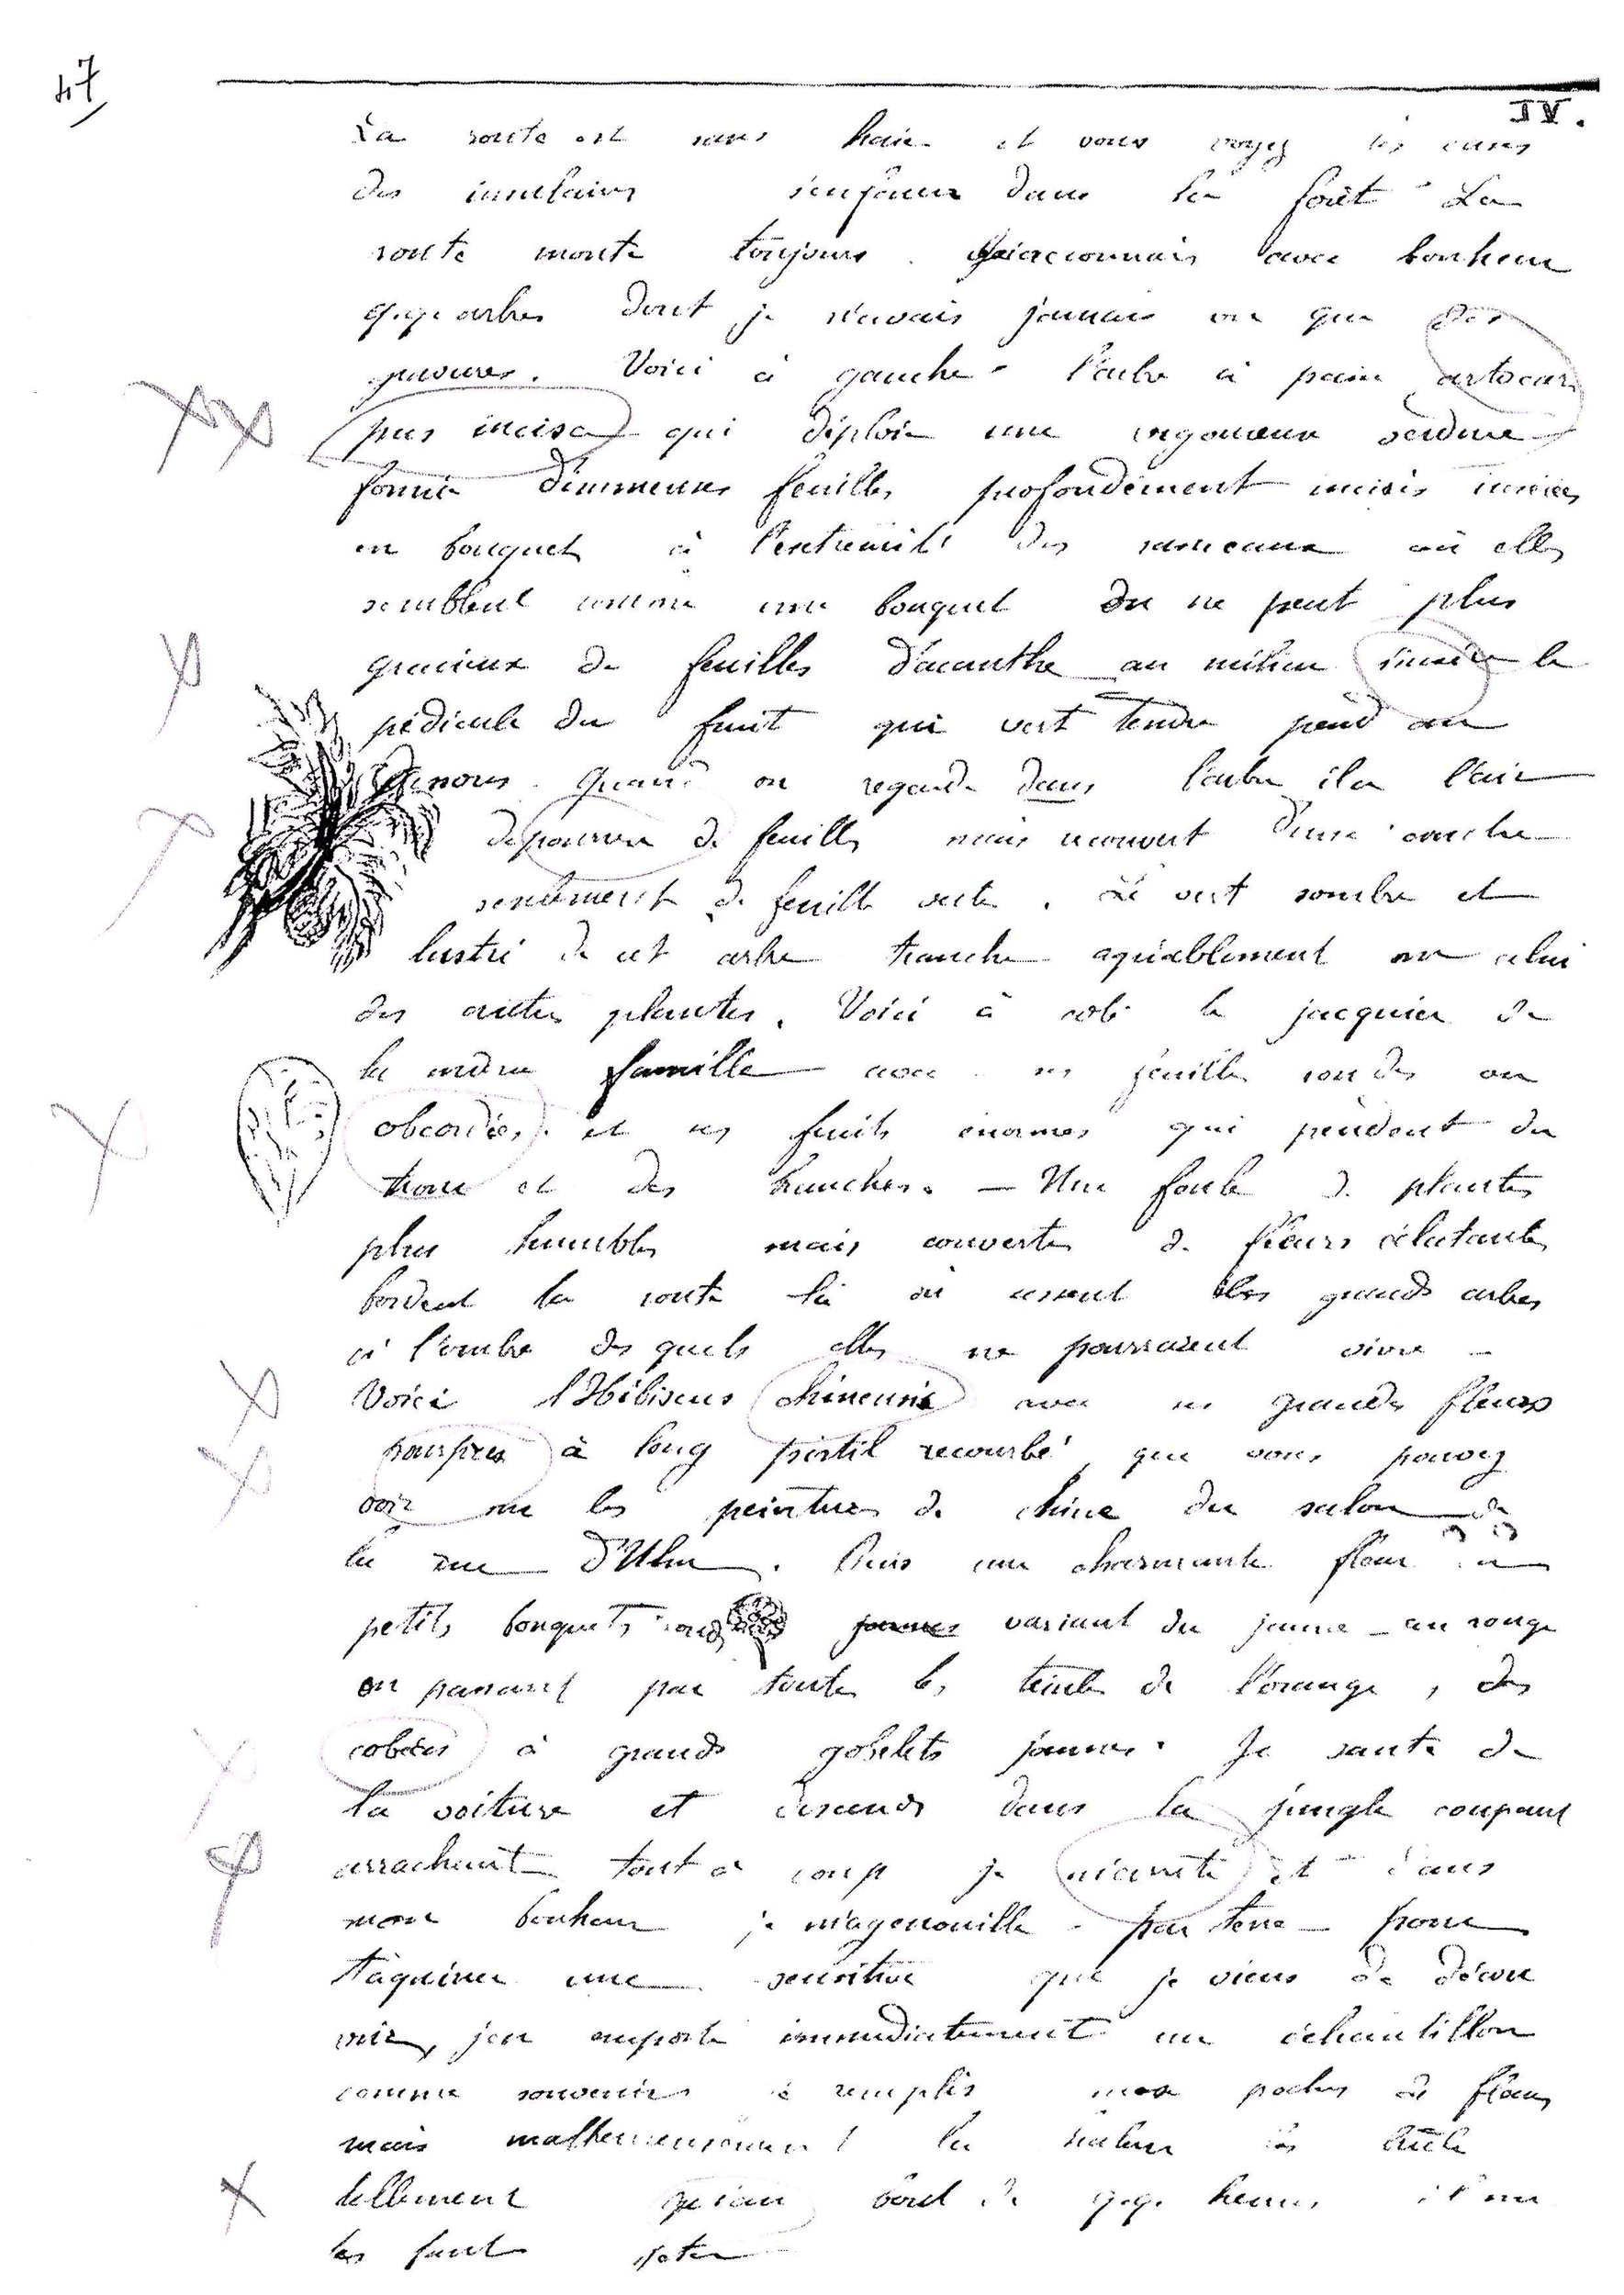 47
IV.
La route est sans haie et vous voyez les cases
des insulaires dans la forêt La
route monte toujours. Je reconnais avec bonheur
q.q. arbres dont je n'avais jamais vu que des
gravures. Voici à gauche l'arbre à pain artocar
pus incisa qui déploie une vigoureuse verdure
formée d'immenses feuilles profondément incisées insérées
en bouquet à l'extrémité des rameaux où elles
semblent comme un bouquet on ne peut plus
gracieux de feuilles d'acanthe au milieu s'insère le
pédicule du fruit qui vert tendre pend au
dehors. Quand on regarde dans l'arbre il a l'air
dépourvu de feuilles mais recouvert d'une couche
seulement de feuilles vertes. Le vert sombre et
lustré de cet arbre tranche agréablement sur celui
des autres plantes. Voici à côté le jacquier de
la même famille avec ses feuilles rondes ou
obcordées et ses fruits énormes qui pendent du
tronc et des branches. — Une foule de plantes
plus humbles mais couvertes de fleurs éclatantes
bordent la route là où cessent les grands arbres
à l'ombre des quels elles ne pourraient vivre —
Voici l'Hibiscus chinensis avec ses grandes fleurs
pourpres à long pistil recourbé que vous pouvez
voir sur les peintures de chine du salon de
la rue d'Ulm. Puis une charmante fleur à
petits bouquets ronds jaunes variant du jaune au rouge
en passant par toutes les teintes de l'orange, des
cobées à grands gobelets jaunes. Je saute de
la voiture et descends dans la jungle coupant
arrachant tout à coup je m'arrête et dans
mon bonheur je m'agenouille par terre pour
taquiner une sensitive que je viens de décou
vrir, j'en emporte immédiatement un échantillon
comme souvenir remplis mes poches de fleurs
mais malheureusement la chaleur les brûle
tellement qu'au bout de q.q. heures il me
les faut jeter